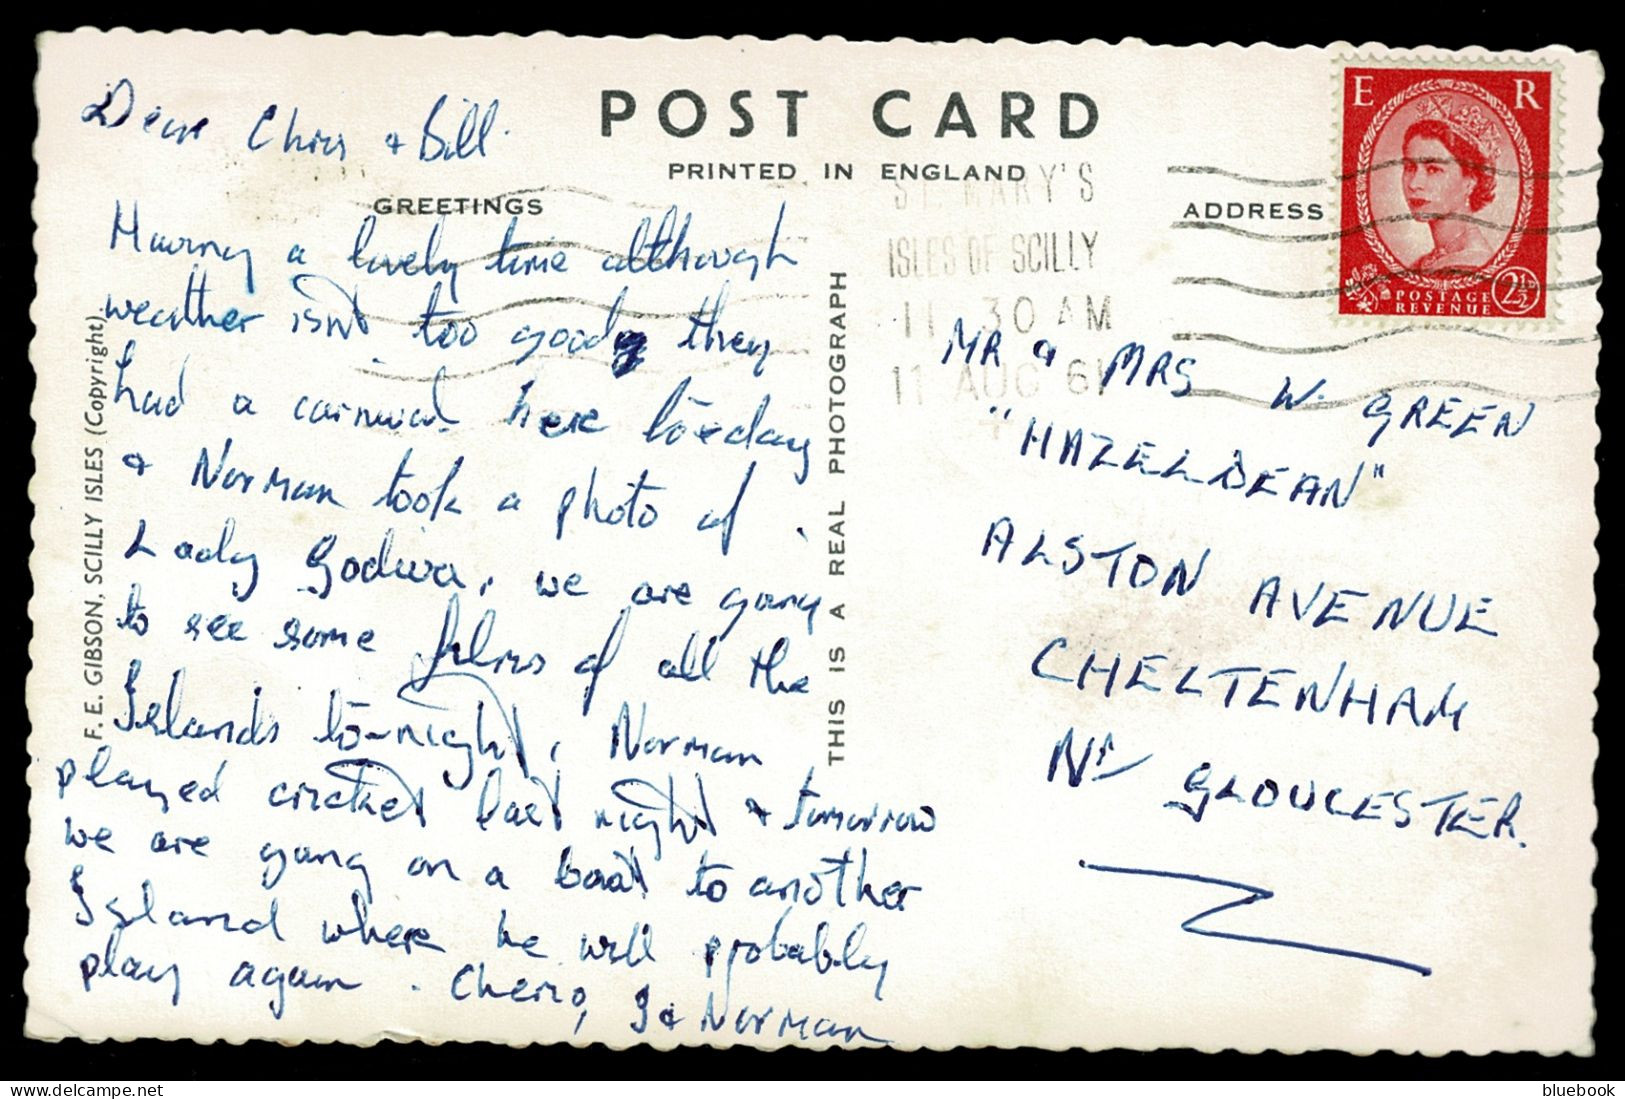 POST CARD
PRINTED IN ENGLAND
GREETINGS
ADDRESS
Dear Chris & Bill.
Having a lovely time although
weather isn't too good, they
had a carnival here to-day
& Norman took a photo of
Lady Godiva, we are going
to see some films of all the
Islands to-night, Norman
played cricket last night & tomorrow
we are going on a boat to another
Island where he will probably
play again. Cheerio,
& Norman
F. E. GIBSON, SCILLY ISLES (Copyright)
THIS IS A REAL PHOTOGRAPH
ST. MARY'S
ISLES OF SCILLY
11 30 AM
11 AUG 61
E R
POSTAGE
REVENUE
2½
MR & MRS W. GREEN
"HAZELDEAN"
ALSTON AVENUE
CHELTENHAM
Nr GLOUCESTER.
delcampe.net
bluebook